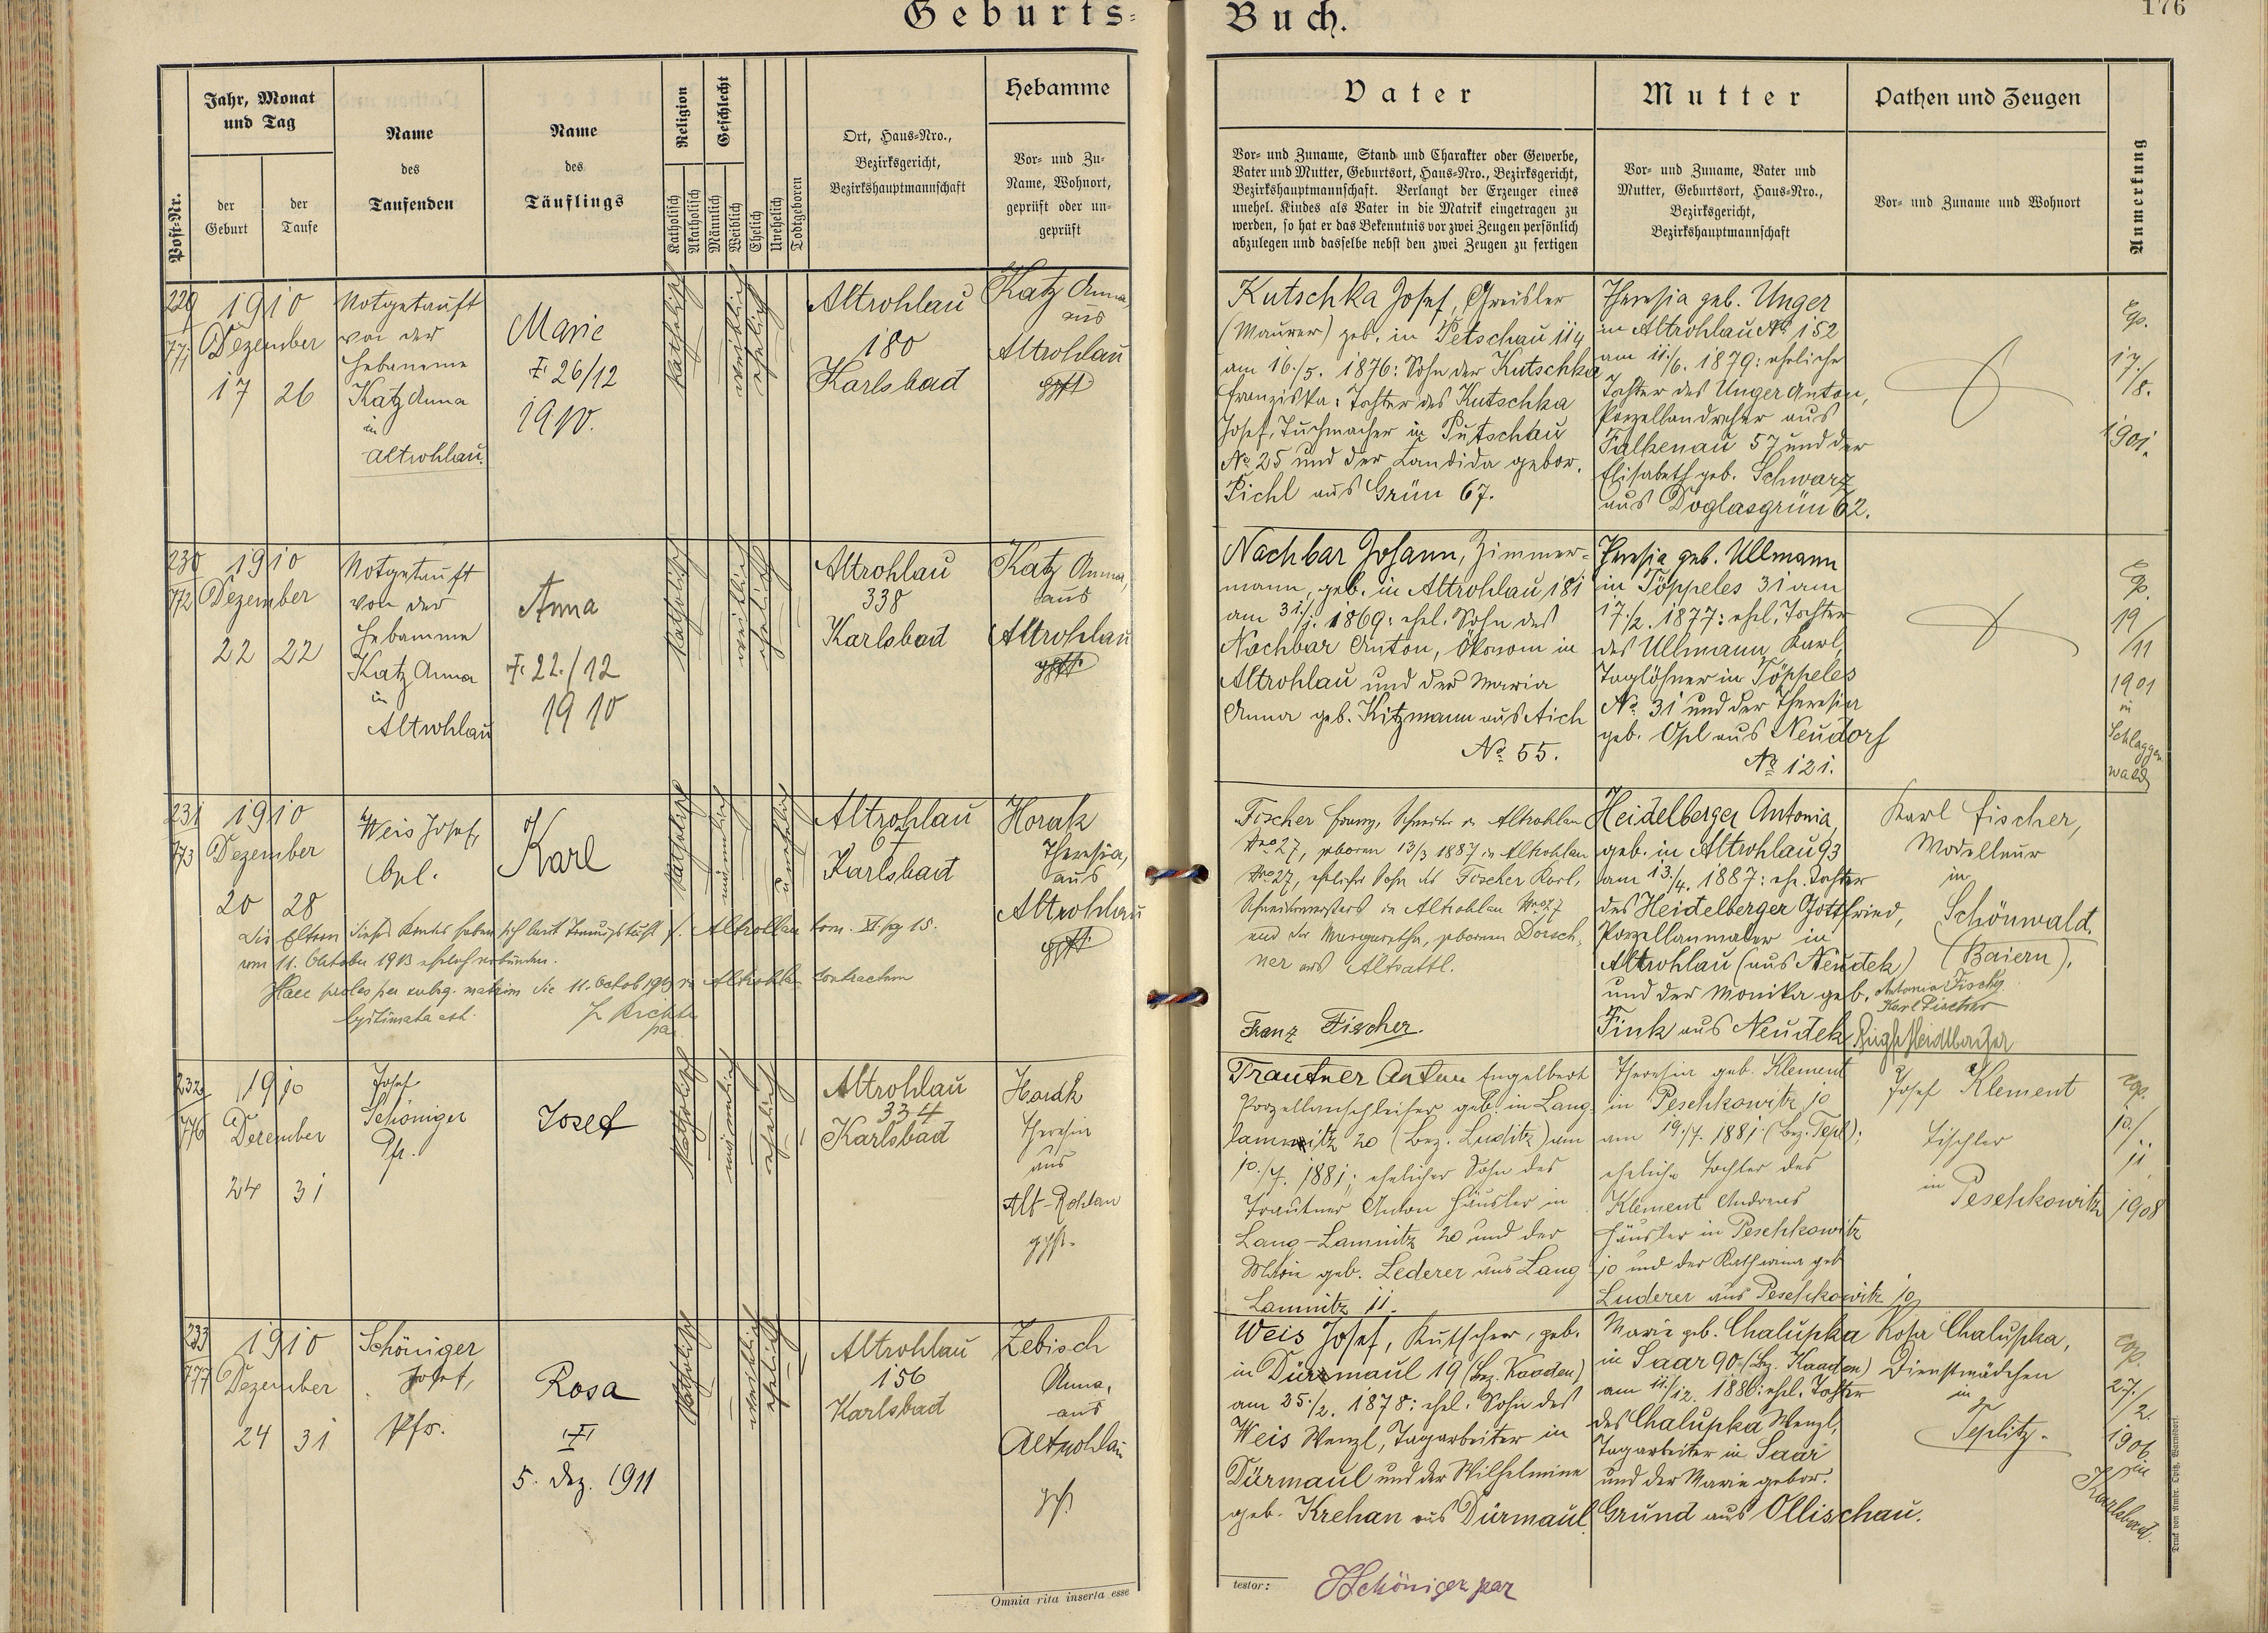 Geburts-
Buch.
176
Post-Nr.
Jahr, Monat
und Tag
der
Geburt
der
Taufe
Name
des
Taufenden
Name
des
Täuflings
Religion
Katholisch
Akatholisch
Geschlecht
Männlich
Weiblich
Ehelich
Unehelich
Todtgeboren
Ort, Haus-Nro.,
Bezirksgericht,
Bezirkshauptmannschaft
Hebamme
Vor- und Zu-
Name, Wohnort,
geprüft oder un-
geprüft
Vater
Vor- und Zuname, Stand und Charakter oder Gewerbe,
Vater und Mutter, Geburtsort, Haus-Nro., Bezirksgericht,
Bezirkshauptmannschaft. Verlangt der Erzeuger eines
unehel. Kindes als Vater in die Matrik eingetragen zu
werden, so hat er das Bekenntnis vor zwei Zeugen persönlich
abzulegen und dasselbe nebst den zwei Zeugen zu fertigen
Mutter
Vor- und Zuname, Vater und
Mutter, Geburtsort, Haus-Nro.,
Bezirksgericht,
Bezirkshauptmannschaft
Pathen und Zeugen
Vor- und Zuname und Wohnort
Anmerkung
229
771
1910
Dezember
17 26
Notgetauft
von der
Hebamme
Katz Anna
in
Altrohlau.
Marie
26/12
1910.
katholisch
weiblich
ehelich
Altrohlau
180
Karlsbad
Katz Anna,
aus
Altrohlau
gpft.
Kutschka Josef, Greisler
(Maurer) geb. in Petschau 114
am 16./5. 1876: Sohn der Kutschka
Franziska: Tochter des Kutschka
Josef, Tuchmacher in Petschau
No 25 und der Kandida gebor.
Pichl aus Grün 67.
Theresia geb. Unger
in Altrohlau No 152
am 11./6. 1879: eheliche
Tochter des Unger Anton,
Porzellandreher aus
Falkenau 57 und der
Elisabeth geb. Schwarz
aus Doglasgrün 62.
cop.
17./
/8.
1901.
230
772
1910
Dezember
22 22
Notgetauft
von der
Hebamme
Katz Anna
in
Altrohlau
Anna
22./12
1910
katholisch
weiblich
ehelich
Altrohlau
338
Karlsbad
Katz Anna,
aus
Altrohlau
gpft.
Nachbar Johann, Zimmer-
mann, geb. in Altrohlau 181
am 31./1. 1869: ehel. Sohn des
Nachbar Anton, Ökonom in
Altrohlau und der Maria
Anna geb. Kitzmann aus Aich
No 55.
Theresia geb. Ullmann
in Töppeles 31 am
17./2. 1877: ehel. Tochter
des Ullmann Karl,
Taglöhner in Töppeles
No 31 und der Theresia
geb. Opl aus Neudorf
No 121.
cop.
19
/11
1901
in
Schlaggen-
wald
231
773
1910
Dezember
20 28
Weis Josef,
Cpl.
Karl
katholisch
männlich
unehelich
Altrohlau
67
Karlsbad
Horak
Theresia,
aus
Altrohlau
gpft.
Die Eltern dieses Kindes haben sich laut Trauungsbuch f. Altrohlau tom. XI. pag 15.
vom 11. Oktober 1913 ehelich verbunden.
Haec proles per subseq. matrim die 11. Octob 1913 in Altrohlau contractum
legitimata est.
J. Richter
par
Fischer Franz, Schneider in Altrohlau
Nro 27, geboren 13/3 1887 in Altrohlau
Nro 27, ehelicher Sohn des Fischer Karl,
Schneidermeisters in Altrohlau Nro 27
und der Margaretha, geborenen Dorsch-
ner aus Altsattl.
Franz Fischer.
Heidelberger Antonia,
geb. in Altrohlau 93
am 13./4. 1887: ehe. Tochter
des Heidelberger Gottfried,
Porzellanmaler in
Altrohlau (aus Neudek)
und der Monika geb.
Fink aus Neudek
Karl Fischer,
Modelleur
in
Schönwald.
(Baiern).
Antonia Fischer
Karl Fischer
Heidlberger
232
776
1910
Dezember
24 31
Josef
Schöniger
Pfr.
Josef
katholisch
männlich
ehelich
Altrohlau
334
Karlsbad
Horak
Theresia
aus
Alt-Rohlau
gpft.
Trautner Anton Engelbert
Porzellanschleifer geb. in Lang-
lamnitz 20 (Bez. Luditz) am
10./7. 1881; ehelicher Sohn des
Trautner Anton Häusler in
Lang-Lamnitz 20 und der
Marie geb. Lederer aus Lang
Lamnitz 11.
Theresia geb. Klement
in Peschkowitz 10
am 19./7. 1881 (Bez. Tepl);
eheliche Tochter des
Klement Andreas
Häusler in Peschkowitz
10 und der Katharina geb
Luderer aus Peschkowitz 10
Josef Klement
Tischler
in
Peschkowitz
cop.
10./
11
1908
233
777
1910
Dezember
24 31
Schöniger
Josef,
Pfr.
Rosa
5. Dez. 1911
katholisch
weiblich
ehelich
Altrohlau
156
Karlsbad
Zebisch
Anna,
aus
Altrohlau
gpft
Weis Josef, Kutscher, geb.
in Dürmaul 19 (Bez. Kaaden)
am 25./2. 1878: ehel. Sohn des
Weis Wenzl, Tagarbeiter in
Dürmaul und der Wilhelmine
geb. Krehan aus Dürmaul
Marie geb. Chalupka
in Saar 90 (Bz. Kaaden)
am 11./12. 1886: ehel. Tochter
des Chalupka Wenzl,
Tagarbeiter in Saar
und der Marie gebor.
Grund aus Ollischau.
Rosa Chalupka,
Dienstmädchen
in
Teplitz.
cop.
27./
/2.
1906
in
Karlsbad.
Omnia rita inserta esse
testor:
JSchöniger par
Druck von Ambr. Opitz, Warnsdorf.